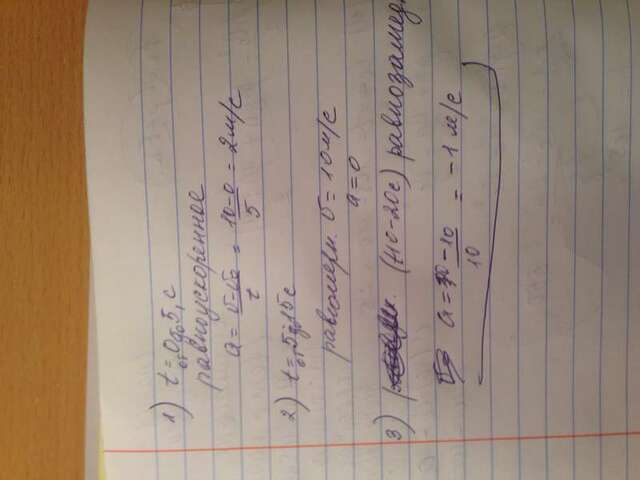 1) t = 0 до 5, с
от
равноускоренное
a = v-v0 / t = 10-0 / 5 = 2 м/с
2) t = 5 до 15 с
от
равномерн. v = 10 м/с
a = 0
3) (t10-20с) равнозамед.
a = 0-10 / 10 = -1 м/с